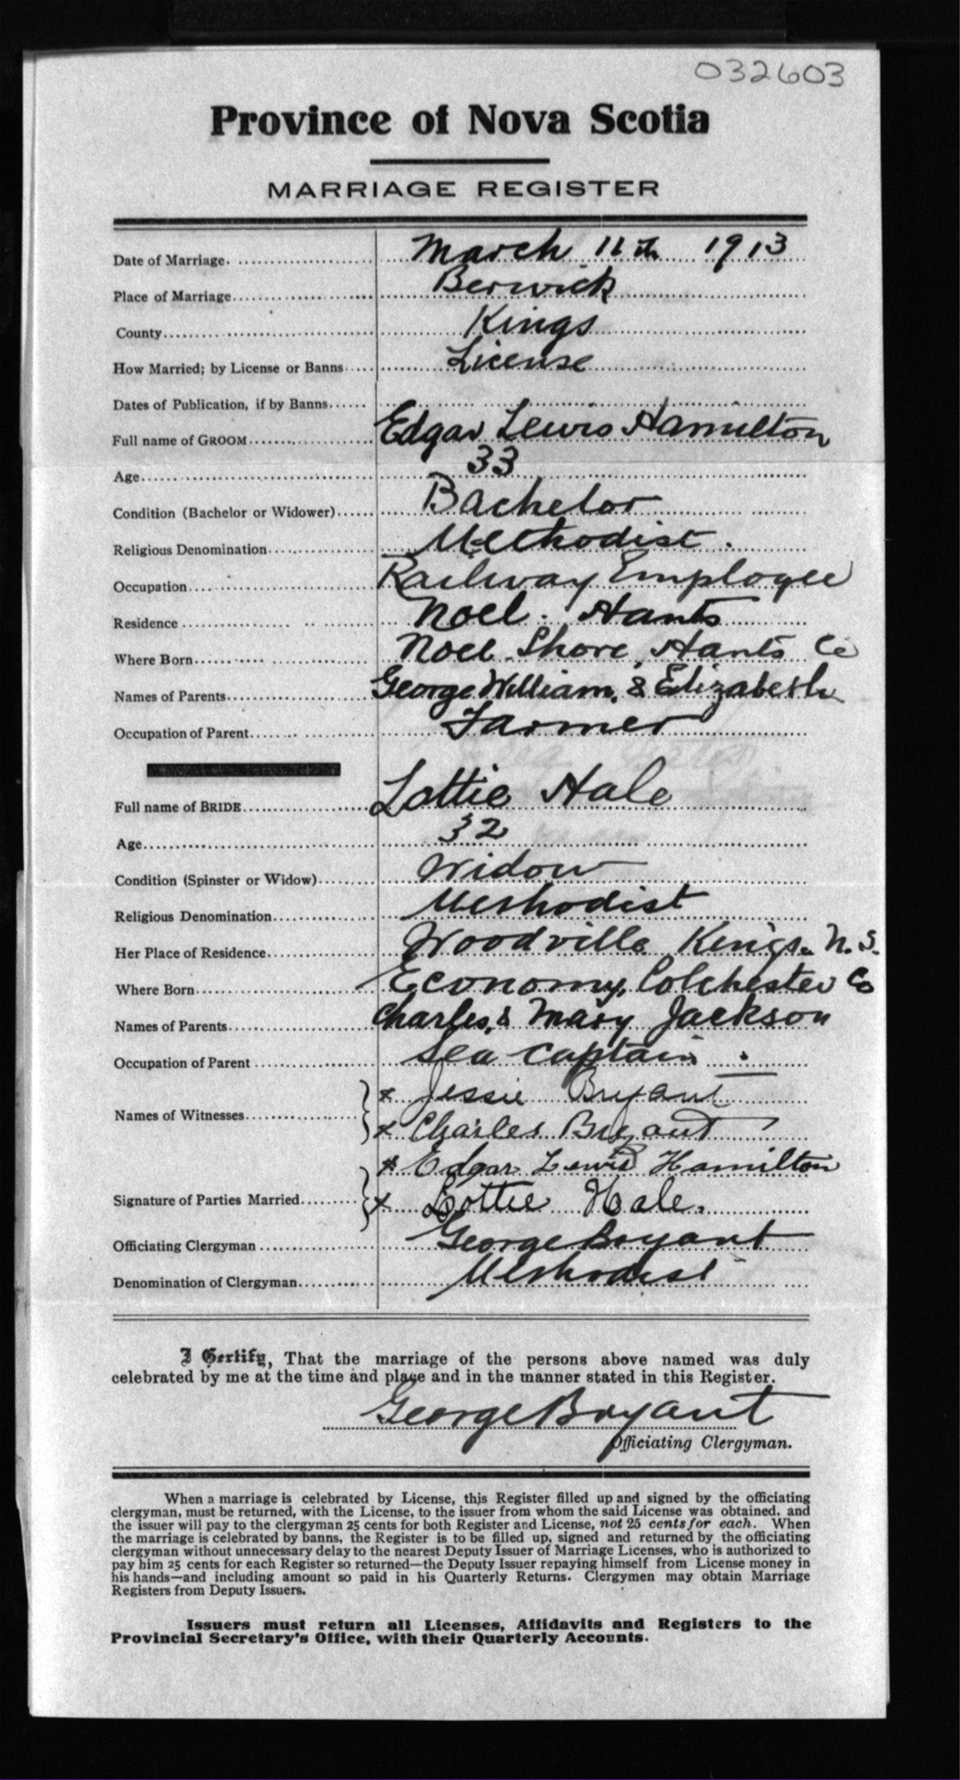 032603
Province of Nova Scotia
MARRIAGE REGISTER
Date of Marriage. March 11th 1913
Place of Marriage Berwick
County Kings
How Married; by License or Banns License
Dates of Publication, if by Banns
Full name of GROOM Edgar Lewis Hamilton
Age 33
Condition (Bachelor or Widower) Bachelor
Religious Denomination Methodist.
Occupation Railway Employee
Residence Noel. Hants
Where Born Noel Shore, Hants Co
Names of Parents George William & Elizabeth
Occupation of Parent Farmer
Full name of BRIDE Lottie Hale
Age 32
Condition (Spinster or Widow) Widow
Religious Denomination Methodist
Her Place of Residence Woodville Kings. N.S.
Where Born Economy, Colchester Co
Names of Parents Charles & Mary Jackson
Occupation of Parent Sea Captain.
Names of Witnesses x Jessie Bryant
x Charles Bryant
Signature of Parties Married x Edgar Lewis Hamilton
x Lottie Hale.
Officiating Clergyman George Bryant
Denomination of Clergyman Methodist
I Certify, That the marriage of the persons above named was duly
celebrated by me at the time and place and in the manner stated in this Register.
George Bryant
Officiating Clergyman.
When a marriage is celebrated by License, this Register filled up and signed by the officiating
clergyman, must be returned, with the License, to the issuer from whom the said License was obtained, and
the issuer will pay to the clergyman 25 cents for both Register and License, not 25 cents for each. When
the marriage is celebrated by banns, the Register is to be filled up, signed and returned by the officiating
clergyman without unnecessary delay to the nearest Deputy Issuer of Marriage Licenses, who is authorized to
pay him 25 cents for each Register so returned—the Deputy Issuer repaying himself from License money in
his hands—and including amount so paid in his Quarterly Returns. Clergymen may obtain Marriage
Registers from Deputy Issuers.
Issuers must return all Licenses, Affidavits and Registers to the
Provincial Secretary's Office, with their Quarterly Accounts.